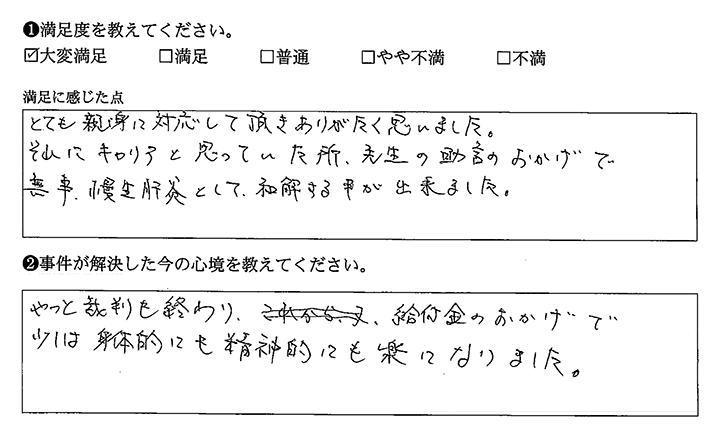 ❶満足度を教えてください。
☑大変満足 □満足 □普通 □やや不満 □不満
満足に感じた点
とても親身に対応して頂きありがたく思いました。
それにキャリアと思っていた所、先生の助言のおかげで
無事、慢性肝炎として、和解する事が出来ました。
❷事件が解決した今の心境を教えてください。
やっと裁判も終わり、、給付金のおかげで
少しは身体的にも精神的にも楽になりました。